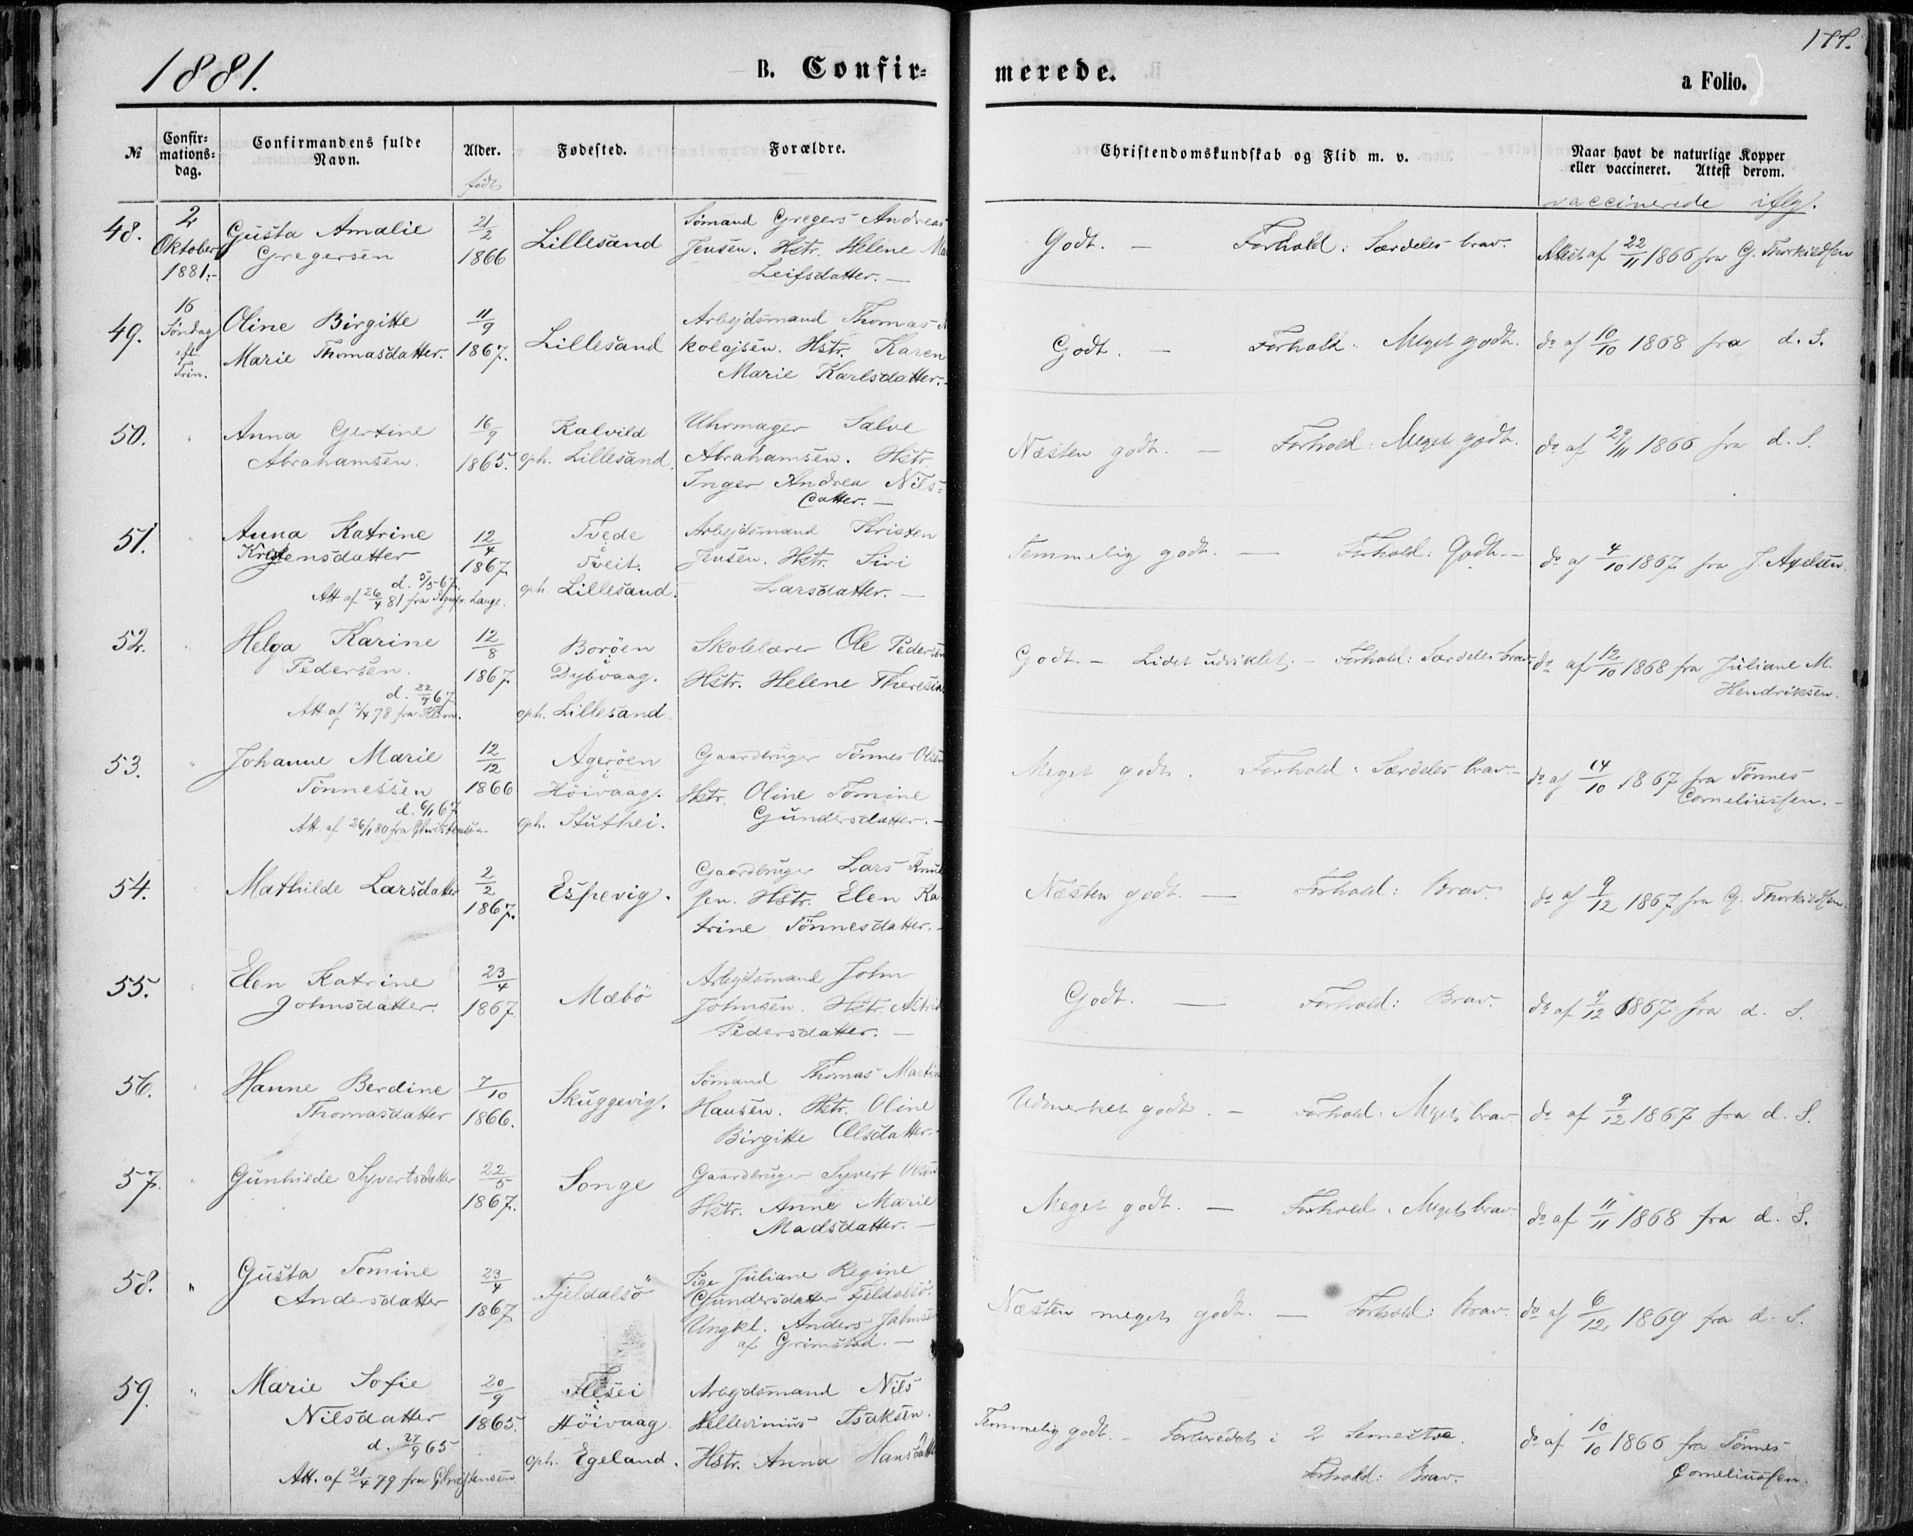 1881.
B. Confir-
merede.
a Folio.
№
Confir-
mations-
dag.
Confirmandens fulde
Navn.
Alder.
født
Fødested.
Forældre.
Christendomskundskab og Flid m. v.
Naar havt de naturlige Kopper
eller vaccineret. Attest derom.
vaccinerede iflg.
48.
2
Oktober
1881.-
Gusta Amalie
Gregersen
21/2
1866
Lillesand
Sømand Gregers Andreas
Jensen. Hstr. Helene
Leifsdatter. —
Godt. — Forhold: Særdeles brav.
Attest af 22/11 1866 fra G. Thorkildsen
49.
16
Søndag
eft.
Trin.
Oline Birgitte
Marie Thomasdatter.
11/9
1867.
Lillesand
Arbejdsmand Thomas
kolajsen. Hstr. Karen
Marie Karlsdatter.
Godt. — Forhold: Meget godt.
do af 10/10 1868 fra d. S.
50.
"
Anna Gertine
Abrahamsen.
16/9
1865.
Kalvild
oph. Lillesand.
Uhrmager Salve
Abrahamsen. Hstr.
Inger Andrea Nils=
datter. —
Næsten godt. — Forhold: Meget godt.
do af 29/11 1866 fra d. S.
51.
"
Anna Katrine
Kristensdatter
d. 5/5 67.
Att af 26/4 81 fra Lange.
12/4
1867.
Tvede
i
Tveit.
oph. Lillesand.
Arbejdsmand Kristen
Jensen. Hstr. Siri
Larsdatter. —
Temmelig godt. — Forhold: Godt. —
do af 4/10 1867 fra J. Axelsen.
52.
"
Helga Karine
Pedersen.
d. 22/9 67.
12/8
1867.
Borøen
i
Dybvaag.
oph. Lillesand.
Skolelærer Ole Pedersen
Hstr. Helene Theresia
Godt. — Lidet udviklet. — Forhold: Særdeles brav.
do af 12/10 1868 fra Juliane M.
Hendriksen.
53.
"
Johanne Marie
Tønnessen
d. 6/1 67
Att. af 26/1 80 fra Christensen.
12/12
1866
Agerøen
i
Høivaag.
oph. Stuthei.
Gaardbruger Tønnes Olsen
Hstr. Oline Tomine
Gundersdatter. —
Meget godt. Forhold: Særdeles brav. —
do af 14/10 1867 fra Tønnes
Corneliussen. —
54.
"
Mathilde Larsdatter
2/2
1867.
Espevig.
Gaardbruger Lars Knud
sen. Hstr. Elen Ka
trine Tønnesdatter. —
Næsten godt. — Forhold: Brav.
do af 9/12 1867 fra G. Thorkildsen.
55.
"
Elen Katrine
Johnsdatter.
23/4
1867.
Mæbø
Arbejdsmand John
Johnsen. Hstr. Astrid
Pedersdatter. —
Godt. — Forhold: Brav.
do af 9/12 1867 fra d. S.
56.
"
Hanne Berdine
Thomasdatter
7/10
1866.
Skuggevig.
Sømand Thomas Martin
Hansen. Hstr. Oline
Birgitte Olsdatter. —
Udmerket godt. — Forhold: Meget brav.
do af 9/12 1867 fra d. S.
57.
Gunhilde Syvertsdatter
22/5
1867.
Songe
Gaardbruger Syvert Olsen
Hstr. Anne Marie
Madsdatter. —
Meget godt. — Forhold: Meget brav.
do af 11/11 1868 fra d. S.
58.
"
Gusta Tomine
Andersdatter
23/4
1867.
Fjeldalsø
Pige Juliane Regine
Gundersdatter Fjeldalsø.
Ungkl. Anders Johnsen
af Grimstad. —
Næsten meget godt. — Forhold: Brav.
do af 6/12 1869 fra d. S.
59.
"
Marie Sofie
Nilsdatter
d. 27/9 65
Att. af 21/4 79 fra Christensen
20/9
1865.
Flesei
i
Høivaag
oph. Egeland.
Arbejdsmand Nils
Isaksen.
Hstr. Anna Hansdatter
Temmelig godt. — Forberedet i 2 Semestre.
Forhold: Brav.
do af 10/10 1866 fra Tønnes
Corneliussen.